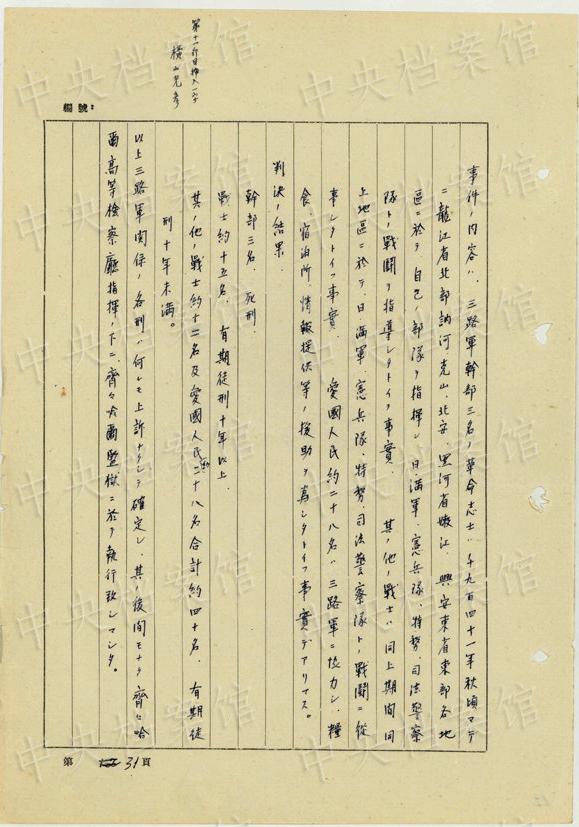 第十一行目挿入一字
橫山光彥
編號:
事件ノ内容ハ、三路軍幹部三名ノ革命志士ハ千九百四十一年秋頃マデ
ニ龍江省北部訥河克山、北安、黒河省嫩江、興安東省東部各地
區ニ於テ自己ノ部隊ヲ指揮シ日満軍、憲兵隊、特務、司法警察
隊トノ戰鬪ヲ指導シタトイフ事實、其ノ他ノ戰士ハ同上期間同
上地區ニ於テ、日満軍、憲兵隊、特務、司法警察隊トノ戰鬪ニ從
事シタトイフ事實、愛國人民約二十八名ハ三路軍ニ協力シ、糧
食、宿泊所、情報提供等ノ援助ヲ為シタトイフ事實デアリマス。
判決ノ結果、
幹部三名、死刑、
戰士約十五名、有期徒刑十年以上、
其ノ他ノ戰士約十二名及愛國人民約二十八名合計約四十名、有期徒
刑十年未満。
以上三路軍関係ノ各刑ハ何レモ上訴ナクシテ確定シ、其ノ後間モナク齊々哈
爾高等檢察廳指揮ノ下ニ、齊々哈爾監獄ニ於テ執行致シマシタ。
第 31頁
中央档案馆